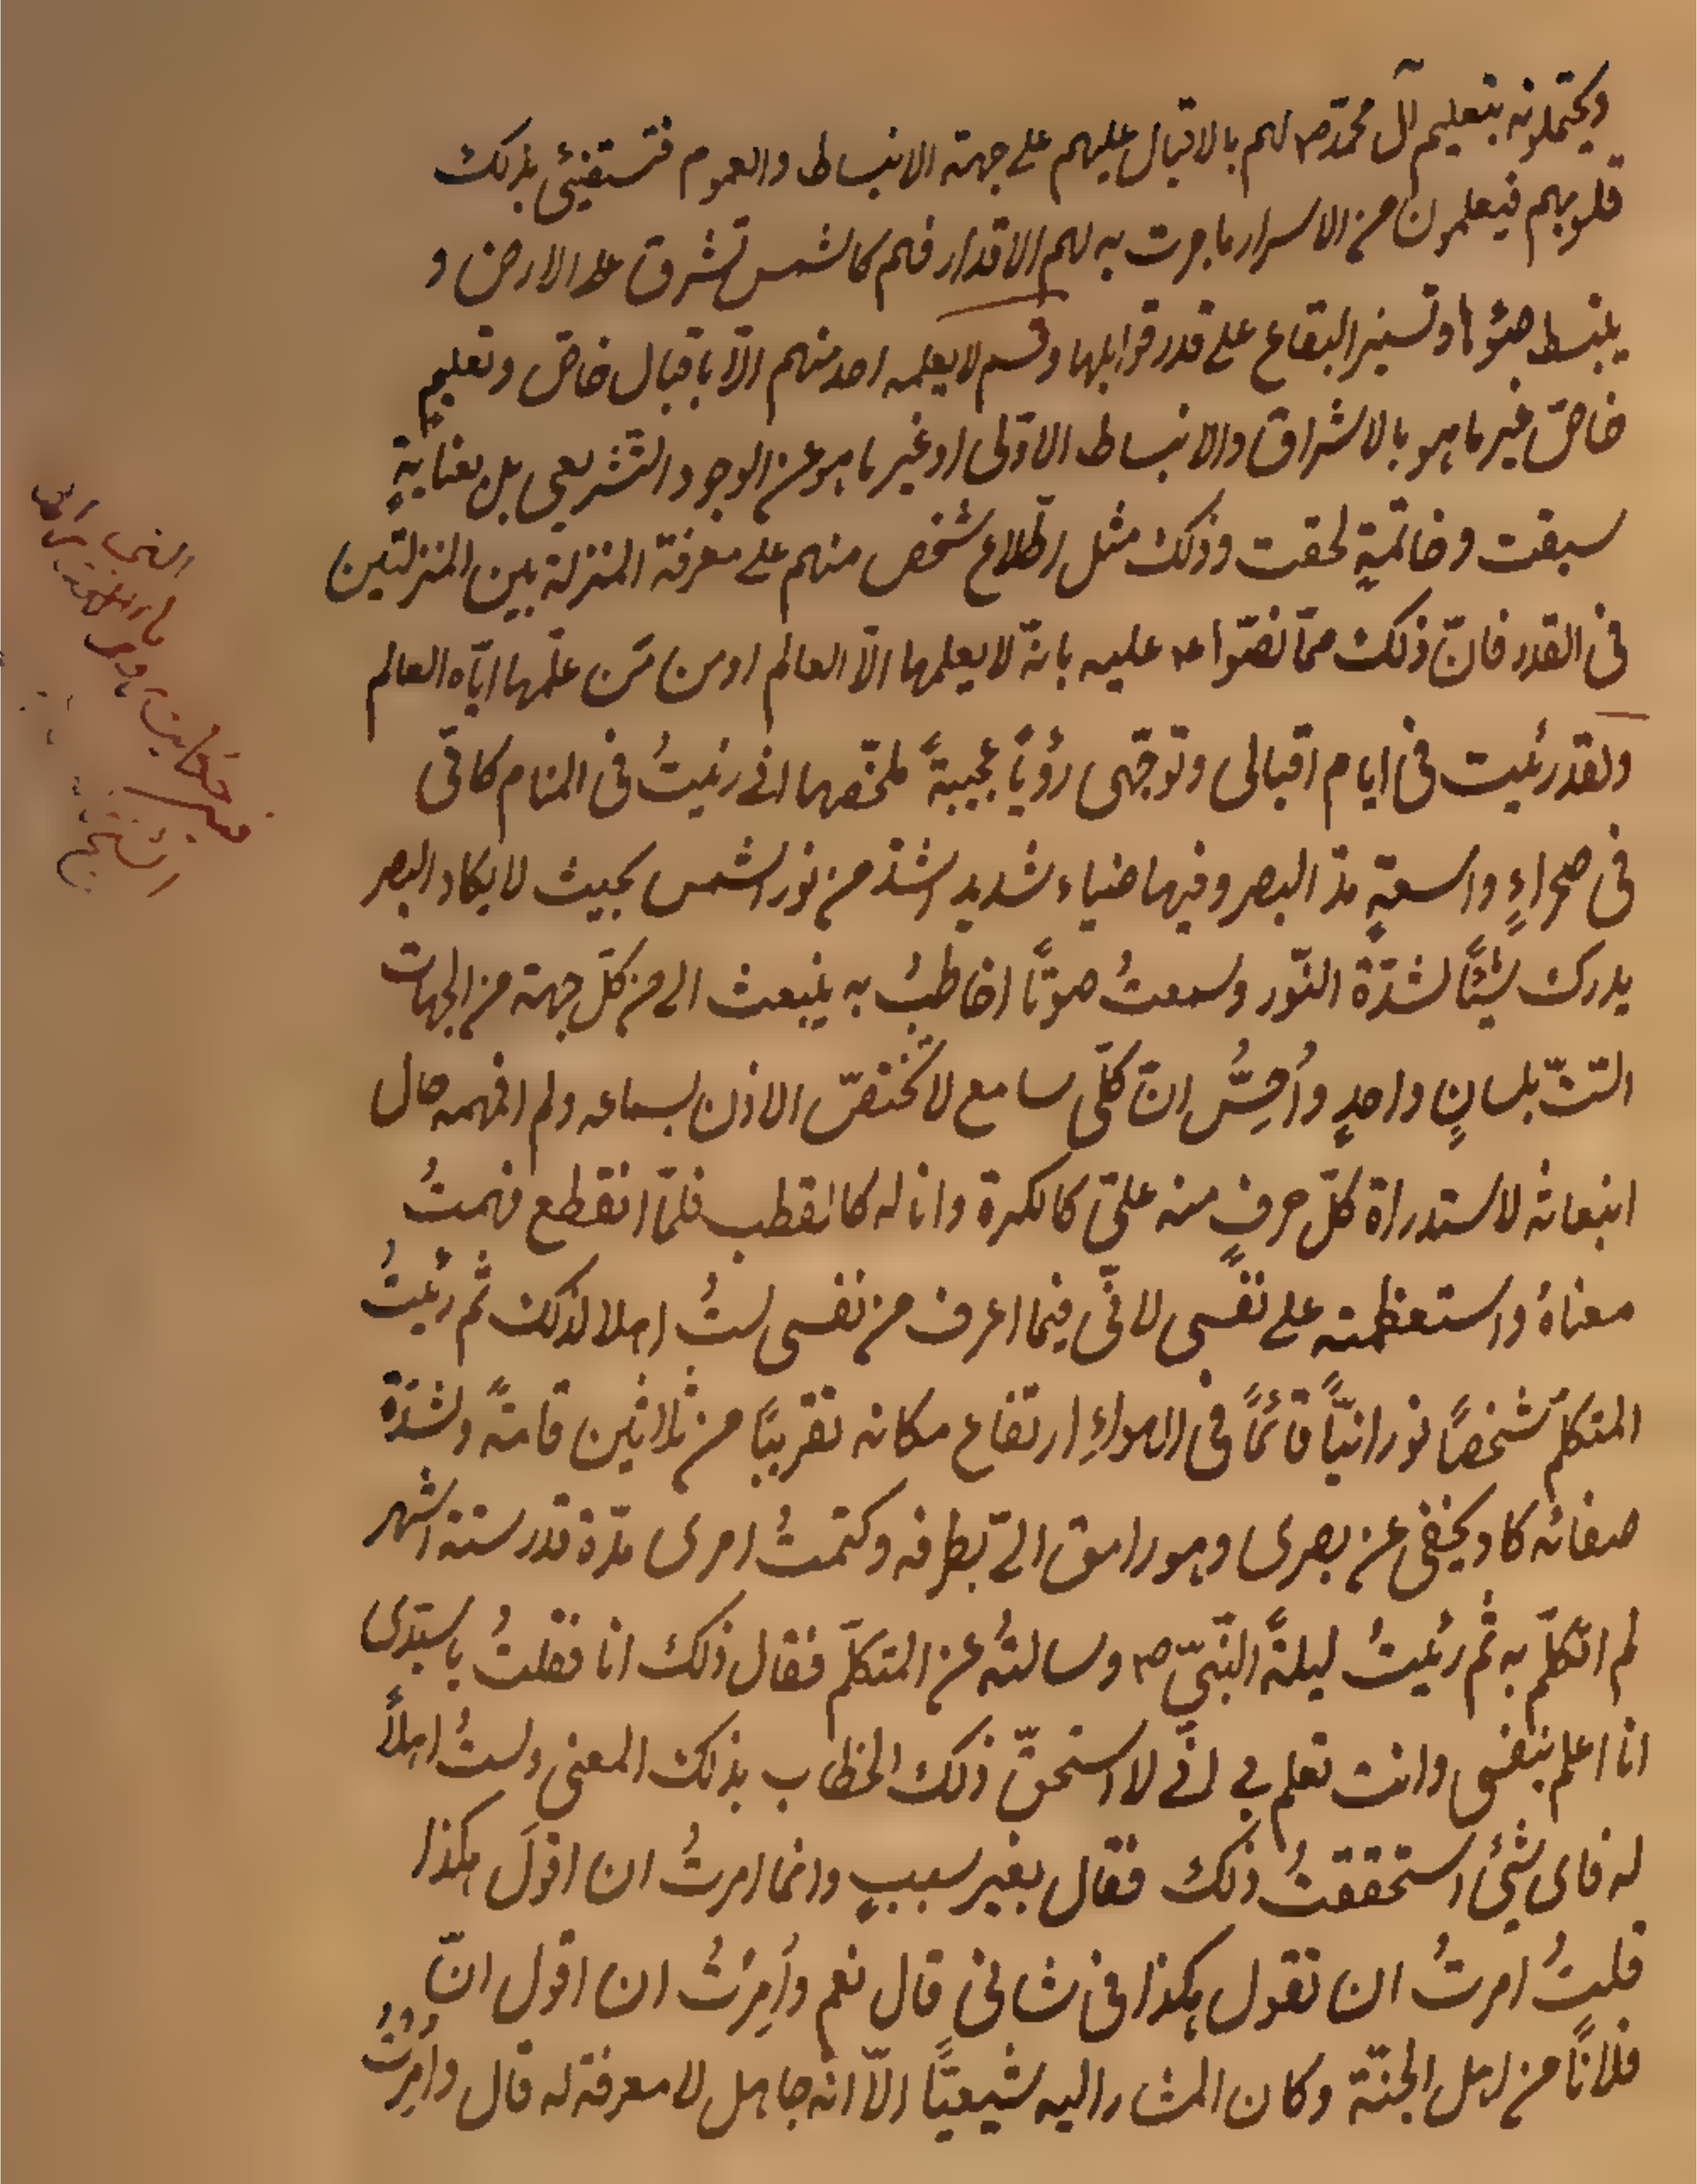 ويحتملونه بتعليم آل محمّد ص لهم بالاقبال عليهم على جهة الانبساط والعموم فتستضيئ بذلك
قلوبهم فيعلمون من الاسرار ما جرت به لهم الاقدار فهم كالشمس تشرق على الارض و
ينبسط ضوؤها وتستنير البقاع على قدر قوابلها وقسم لا يعلمه احد منهم الّا باقبال خاصّ وتعليمٍ
خاصّ غير ما هو بالاشراق والانبساط الاوّلى او غير ما هو عن الوجود التشريعى بل بعنايةٍ
سبقت وخاتمةٍ لحقت وذلك مثل اطّلاع شخص منهم على معرفة المنزلة بين المنزلتين
فى القدر فانّ ذلك ممّا نصّوا ع عليه بانّه لا يعلمها الّا العالم او من مَن علّمها ايّاه العالم
ولقد رئيت فى ايام اقبالى وتوجّهى رؤيًا عجيبةً ملخّصها انى رئيتُ فى المنام كانّى
فى صحراءٍ واسعةٍ مدّ البصر وفيها ضياء شديد اشدّ من نور الشمس بحيث لا يكاد البصر
يدرك شيئًا لشدّة النّور وسمعتُ صوتًا اخاطَبُ به ينبعث الى من كلّ جهة من الجهات
الستّ بلسانٍ واحدٍ واُحِسُّ انّ كلّى سامع لا تختصّ الاذن بسماعه ولم افهمه حال
انبعاثه لاستدراة كلّ حرفٍ منه علىّ كالكرة وانا له كالقطب فلمّا انقطع فهمتُ
معناهُ واستعظمته على نفسى لانّى فيما اعرف من نفسى لستُ اهلا لذلك ثم رئيتُ
المتكلّم شخصًا نورانيًّا قائمًا فى الهواءِ ارتفاع مكانه تقريبًا من ثلاثين قامةً ولشدّة
صفائه كاد يخفى عن بصرى وهو رامق الىّ بطرفه وكتمتُ امرى مدّة قدر ستة اشهر
لم اتكلّم به ثم رئيتُ ليلةً النّبىّ ص وسالتهُ عن المتكلّم فقال ذلك انا فقلتُ يا سيّدى
انا اعلم بنفسى وانت تعلم بى انّى لا استحقّ ذلك الخطاب بذلك المعنى ولستُ اهلاً
له فاى شيئ استحققتُ ذلك فقال بغير سببٍ وانما امرتُ ان اقولَ هكذا
قلتُ امرتُ ان تقول هكذا فى شانى قال نعم واُمِرْتُ ان اقول انّ
فلانًا من اهل الجنّة وكان المشار اليه شيعيًّا الّا انّه جاهل لا معرفة له قال واُمِرْتُ